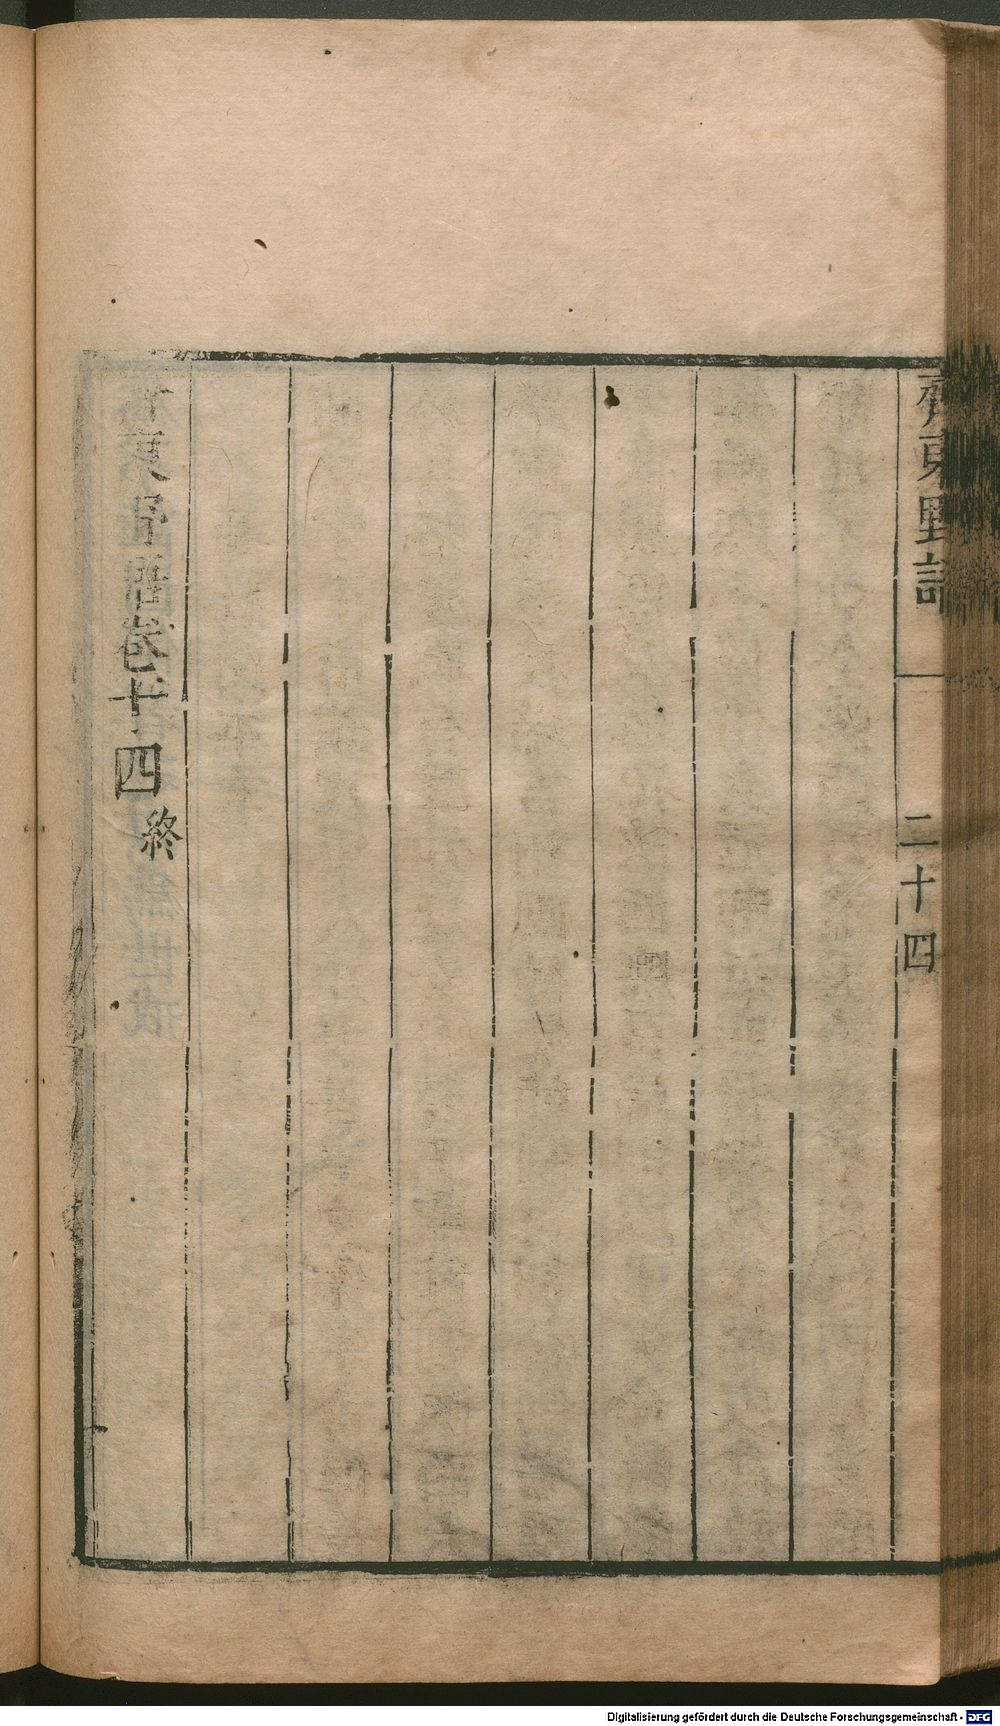 齊東野語
二十四
齊東野語卷十四終
Digitalisierung gefördert durch die Deutsche Forschungsgemeinschaft - DFG